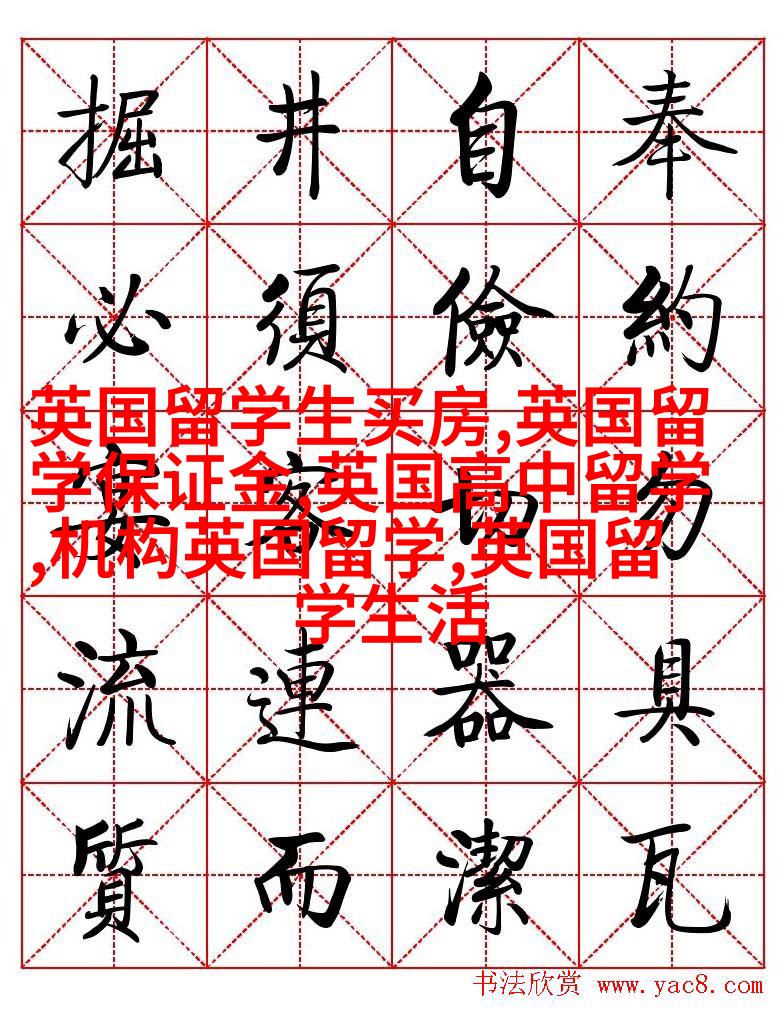 掘井自奉
必須儉約
英国留学生买房,英国留
学保证金,英国高中留学
宴客切勿
,机构英国留学,英国留
学生活
流連器具
質而潔瓦
书法欣赏 www.yac8.com